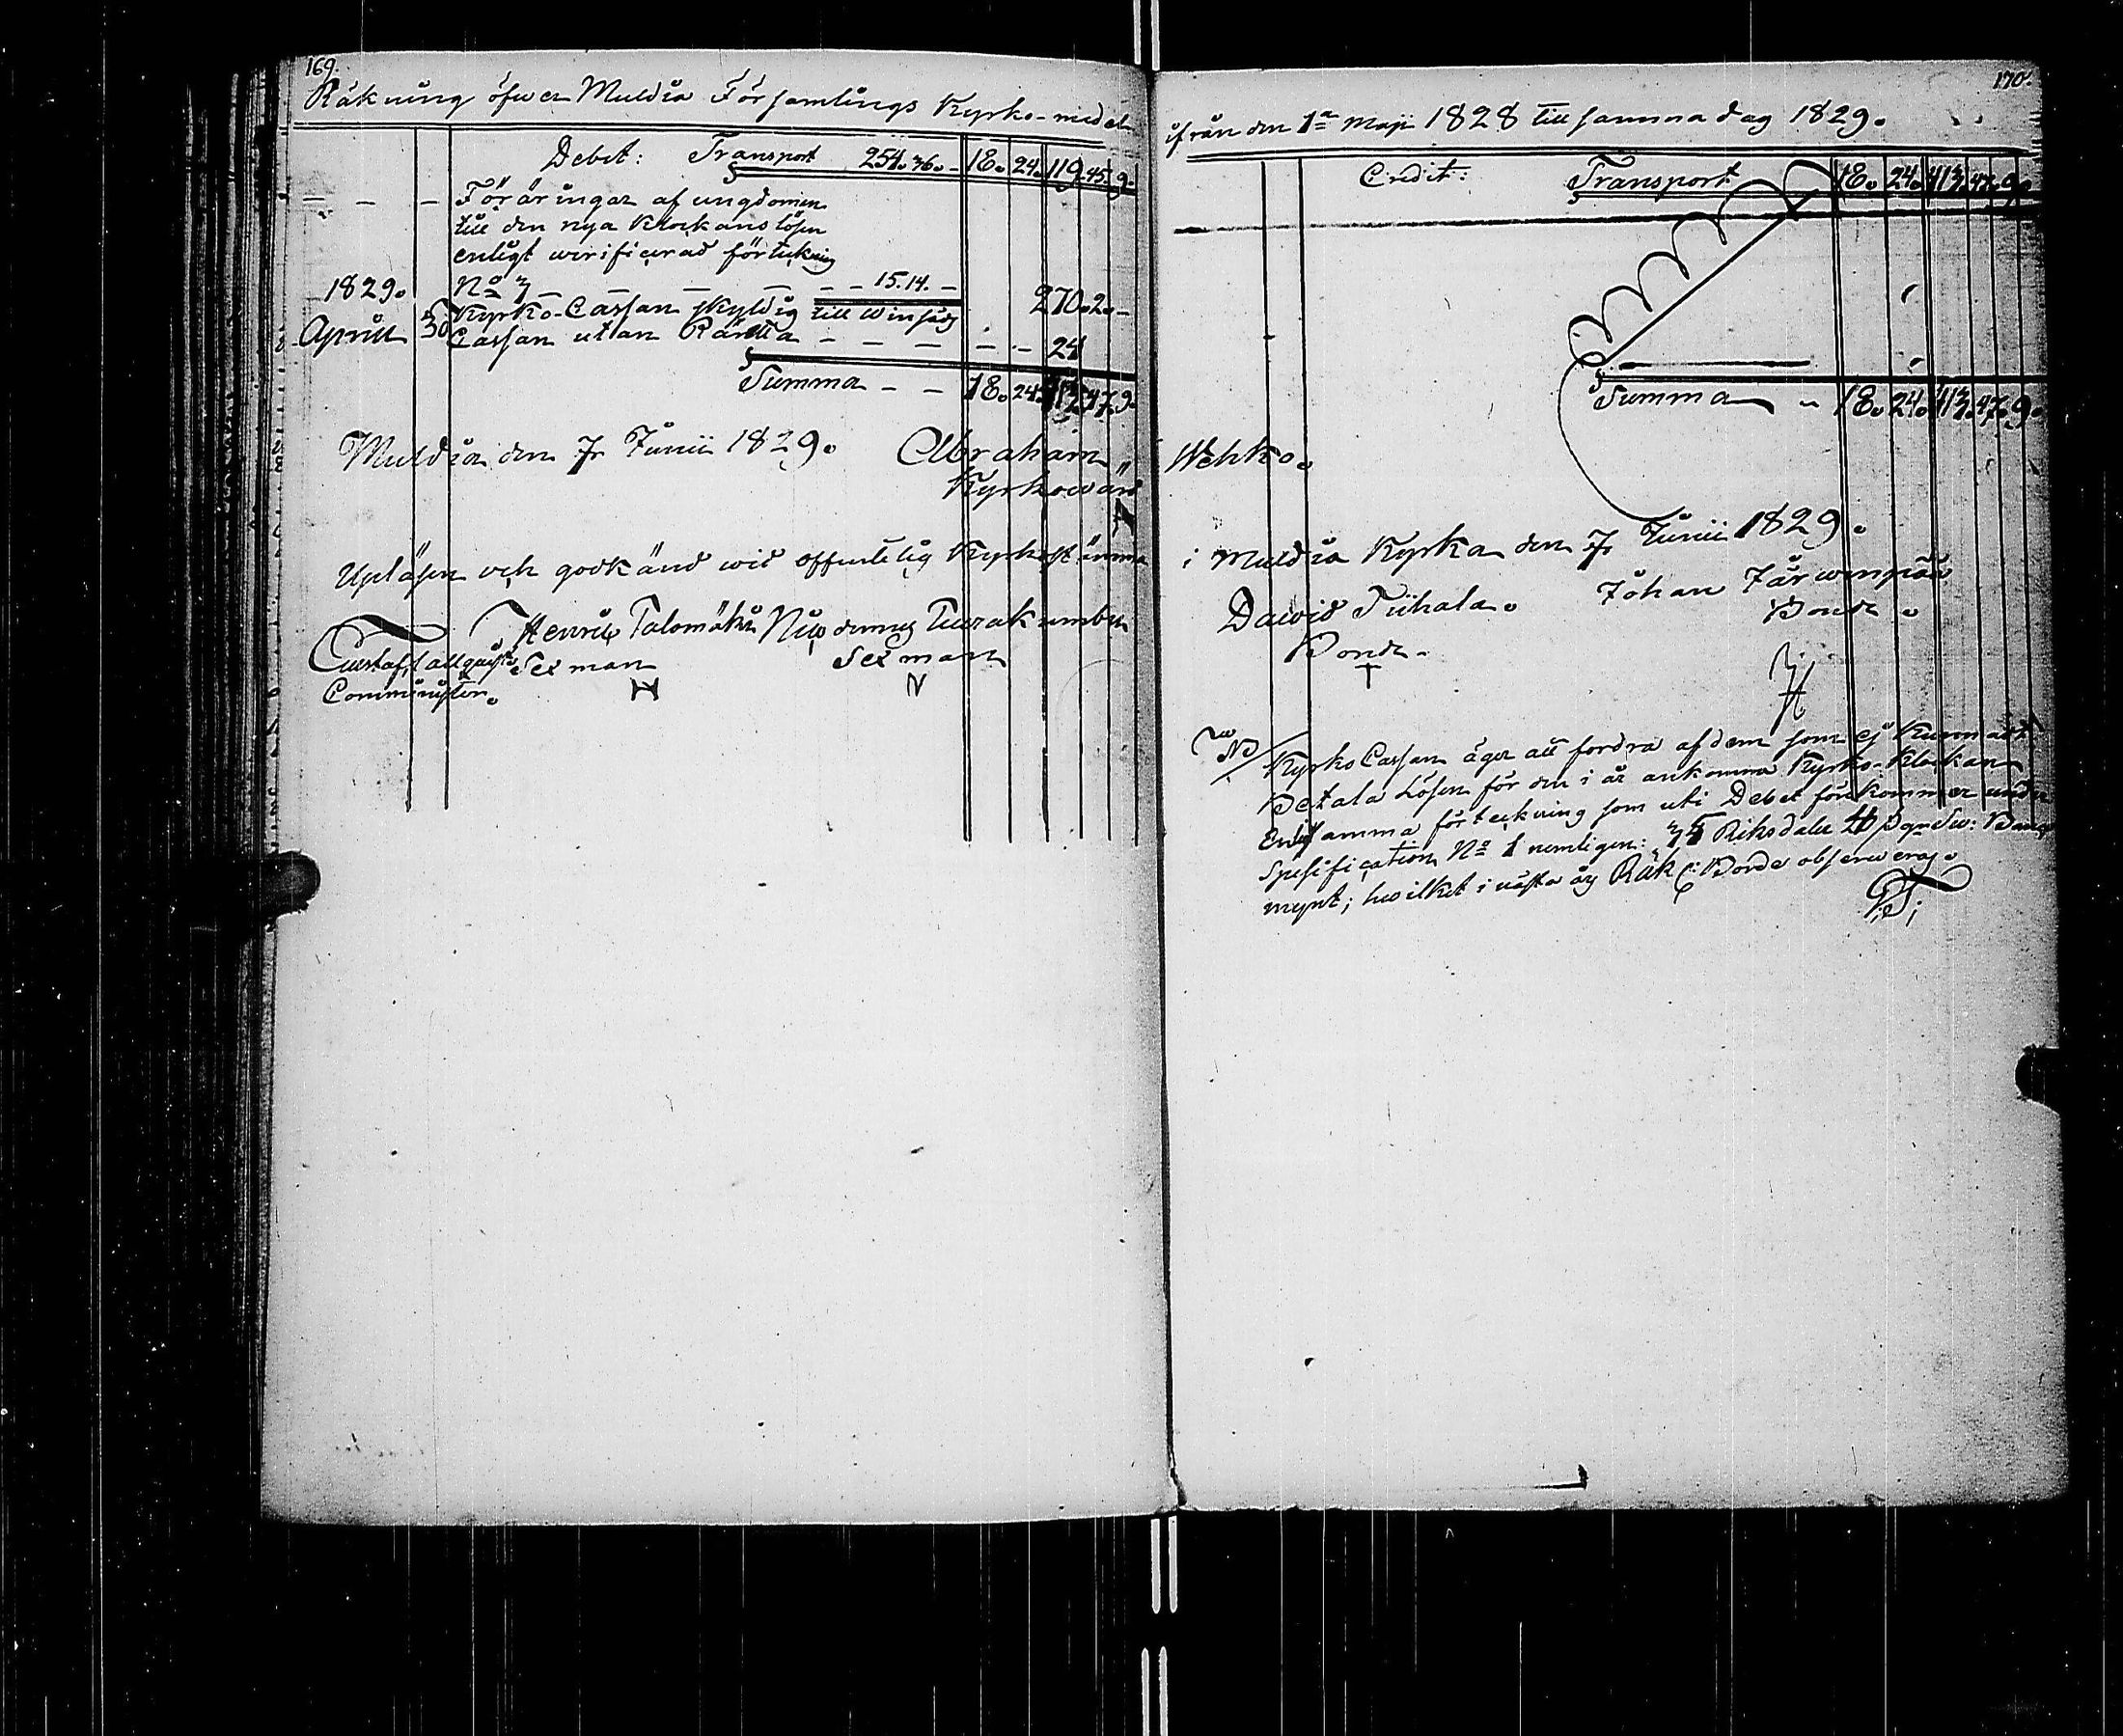 169.
Räkning öfwer Muldia Församlings Kyrko-medel
Debet: Transport 254. 36. - 18. 24. 119. 45. 9.
— — — Föräringar af ungdomen
till den nya Klockans lösen
enligt wirificerad förtekning
1829. No 3 — — — — — — 15. 14. — 270. 2. —
Aprill 30 Kyrko-Cassan skyldig till Winsäds
Cassan utan Ränta — — — — — 24
Summa — — 18. 24. 413. 47. 9.
Muldia den 7 Junii 1829. Abraham
Kyrkowärd
Upläsen och godkänd wid offentelig Kyrkostämma
Henric Talomäki Nicodemus
Gustaf Sexman Sexman
Comminister. H N
170.
ifrån den 1a Maji 1828 till samma dag 1829.
Credit: Transport 18. 24. 413. 47. 9.
Summa — 18. 24. 413. 47. 9.
Wehko.
i Muldia Kyrka den 7 Junii 1829.
Dawid Tiihala. Johan Järwenpää
Bonde. Bonde.
NB Kyrko Cassan äger att fordra af dem som ej Kunnat
Betala Lösen för den i år ankomna Kyrko-Klockan
Enligt samma förteckning som uti Debet förekommer under
Spesification No 1 nemligen: 35 Riksdaler
mynt; hwilket i nästa års Räk: Borde observeras.